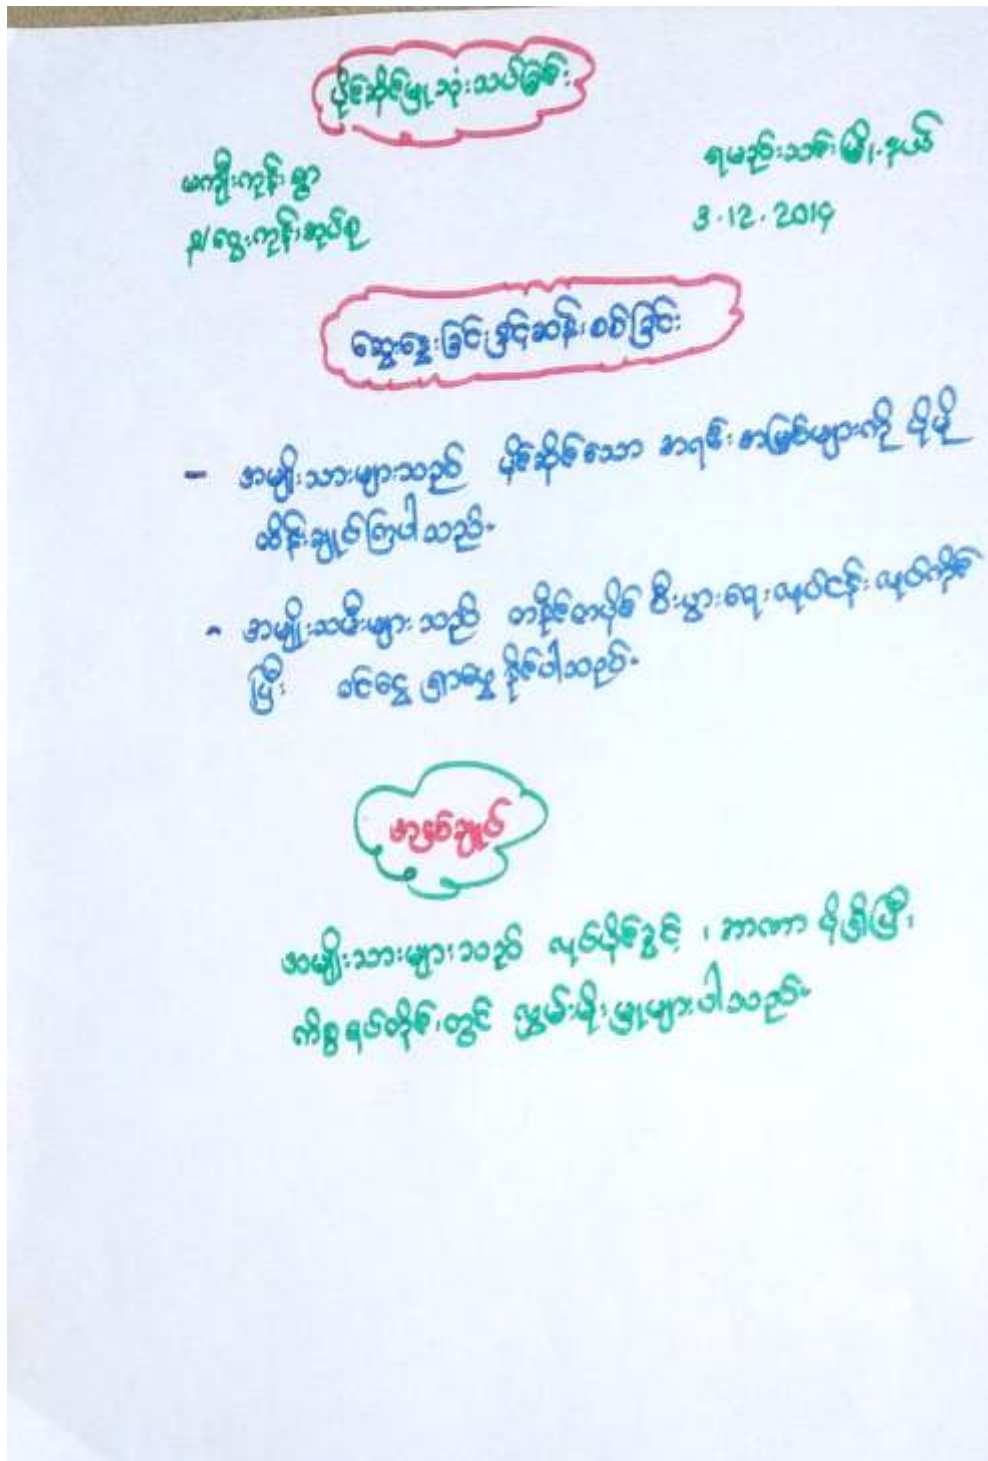 ပိုင်ဆိုင်မှု သုံးသပ်ခြင်း
မကျီးကုန်းရွာ
ရမည်းသင်းမြို့နယ်
ဒ/ငွေးကုန်းအုပ်စု
3.12.2014
ဆွေးနွေးခြင်းနှင့်ဆန်းစစ်ခြင်း
- အမျိုးသားများသည် ပိုင်ဆိုင်သော အရင်းအမြစ်များကို ပိုမို
ထိန်းချုပ်ကြပါသည်။
- အမျိုးသမီးများသည် တနိုင်တပိုင် စီးပွားရေးလုပ်ငန်းလုပ်ကိုင်
ပြီး ဝင်ငွေ ရှာဖွေ နိုင်ပါသည်။
အနှစ်ချုပ်
အမျိုးသားများသည် လုပ်ပိုင်ခွင့် ၊ အာဏာ ပိုရှိပြီး
ကိစ္စရပ်တိုင်းတွင် လွှမ်းမိုးမှုများပါသည်။